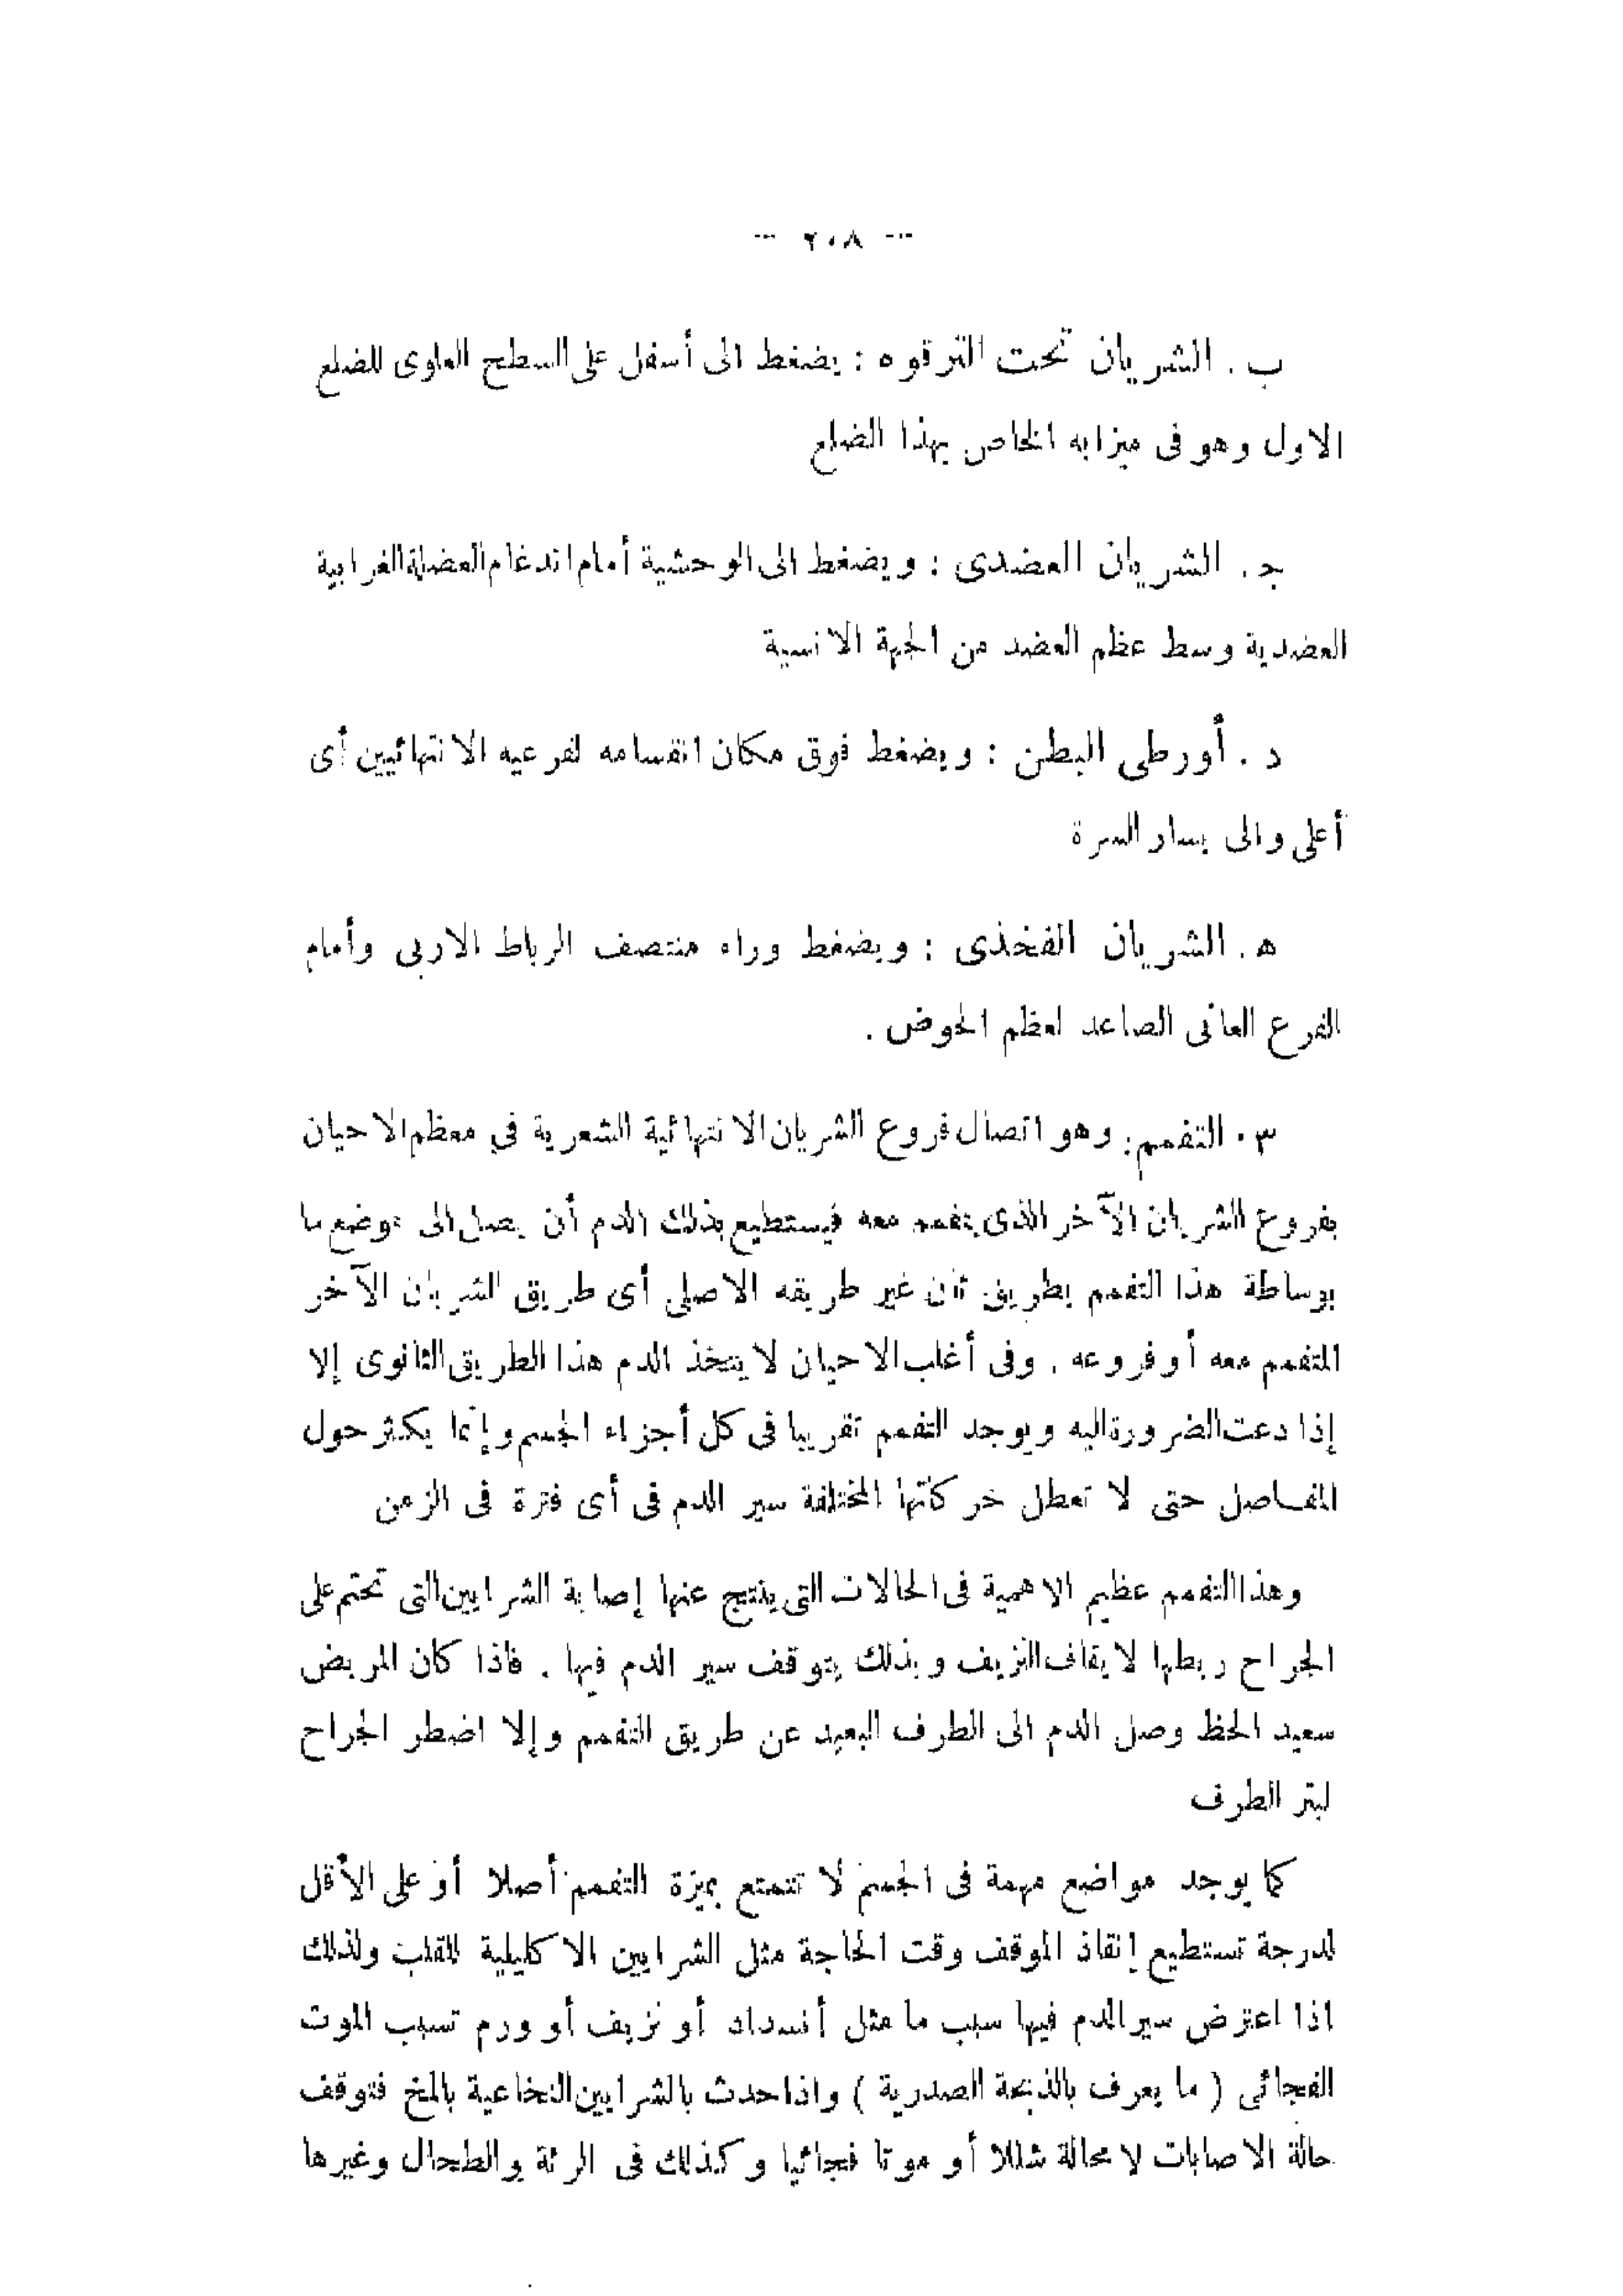 --- ٢٠٨ ---
ب . الشريان تحت الترقوه : يضغط الى أسفل على السطح العلوى للضلع
الاول وهو فى ميزابه الخاص بهذا الضلع
ج . الشريان العضدى : ويضغط الى الوحشية أمام اندغام العضلة الغرابية
العضدية وسط عظم العضد من الجهة الانسية
د . أورطى البطن : ويضغط فوق مكان انقسامه لفرعيه الانتهائيين أى
أعلى والى يسار السرة
ه . الشريان الفخذى : ويضغط وراء منتصف الرباط الاربى وأمام
الفرع العانى الصاعد لعظم الحوض .
٣ . التفمم : وهو اتصال فروع الشريان الانتهائية الشعرية في معظم الاحيان
بفروع الشريان الآخر الذى يتفمم معه فيستطيع بذلك الدم أن يصل الى موضع ما
بوساطة هذا التفمم بطريق ثان غير طريقه الاصلى أى طريق الشريان الآخر
المتفمم معه أو فروعه . وفى أغلب الاحيان لا يتخذ الدم هذا الطريق الثانوى إلا
إذا دعت الضرورة اليه ويوجد التفمم تقريبا فى كل أجزاء الجسم وإنما يكثر حول
المفاصل حتى لا تعطل حركاتها المختلفة سير الدم فى أى فترة فى الزمن
وهذا التفمم عظيم الاهمية فى الحالات التى ينتج عنها إصابة الشرايين التى تحتم على
الجراح ربطها لايقاف النزيف وبذلك يتوقف سير الدم فيها . فاذا كان المريض
سعيد الحظ وصل الدم الى الطرف البعيد عن طريق التفمم وإلا اضطر الجراح
لبتر الطرف
كما يوجد مواضع مهمة فى الجسم لا تتمتع بميزة التفمم أصلا أو على الأقل
لدرجة تستطيع إنقاذ الموقف وقت الحاجة مثل الشرايين الاكليلية للقلب ولذلك
اذا اعترض سير الدم فيها سبب ما مثل أنسداد أو نزيف أو ورم تسبب الموت
الفجائى ( ما يعرف بالذبحة الصدرية ) واذا حدث بالشرايين النخاعية بالمخ فتوقف
حالة الاصابات لا محالة شللا أو موتا فجائيا وكذلك فى الرئة والطحال وغيرها